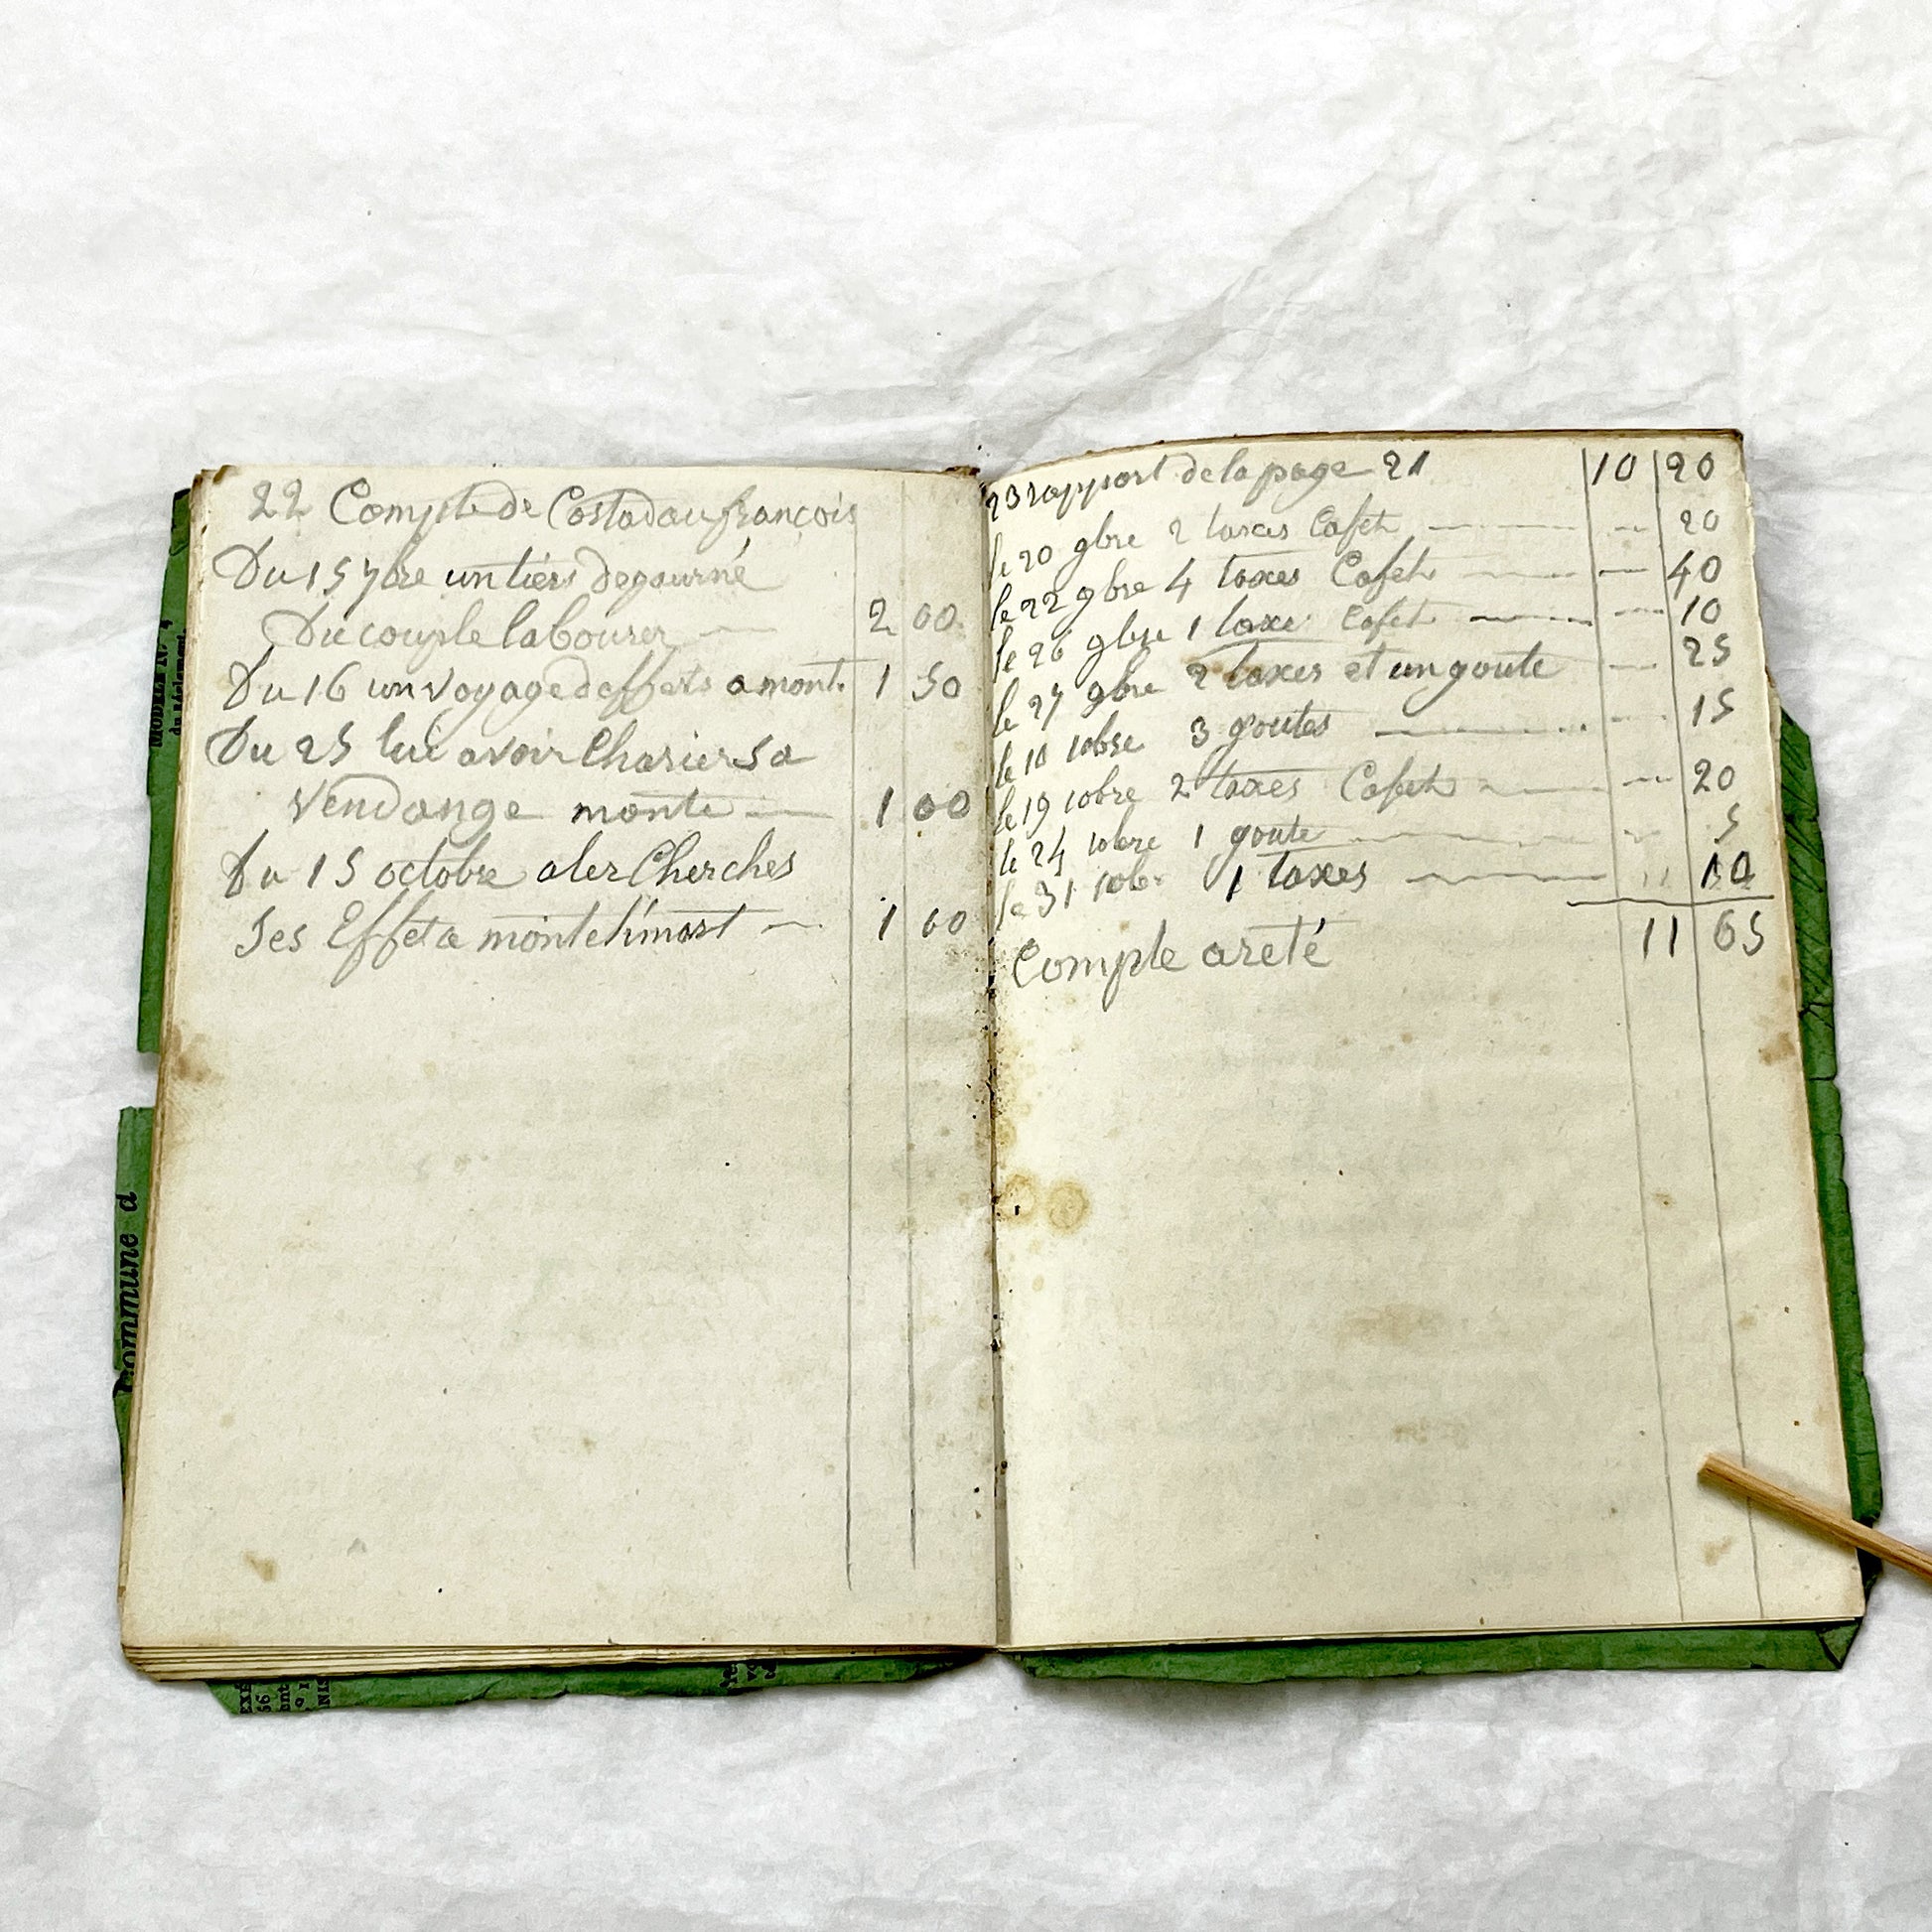 22 Compte de Costadau françois
Du 15 7bre un tiers de journé
Du couple labourer — 2 00
Du 16 un voyage d effets a mont. 1 50
Du 25 lui avoir Charier sa
Vendange monte — 1 00
Du 15 octobre aler Cherches
Ses Effet a montelimart — 1 60
23 rapport de la page 21 10 20
le 20 9bre 2 taxes Cafet — — 20
le 22 9bre 4 taxes Cafet — — 40
le 26 9bre 1 taxe Cafet — — 10
le 27 9bre 2 taxes et un goute — 25
le 10 10bre 3 goutes — — 15
le 19 10bre 2 taxes Cafet — — 20
le 24 10bre 1 goute — — 5
le 31 10br 1 taxes — 10
Compte areté 11 65
MODÈLE N° 4
du Règlement.
Commune d